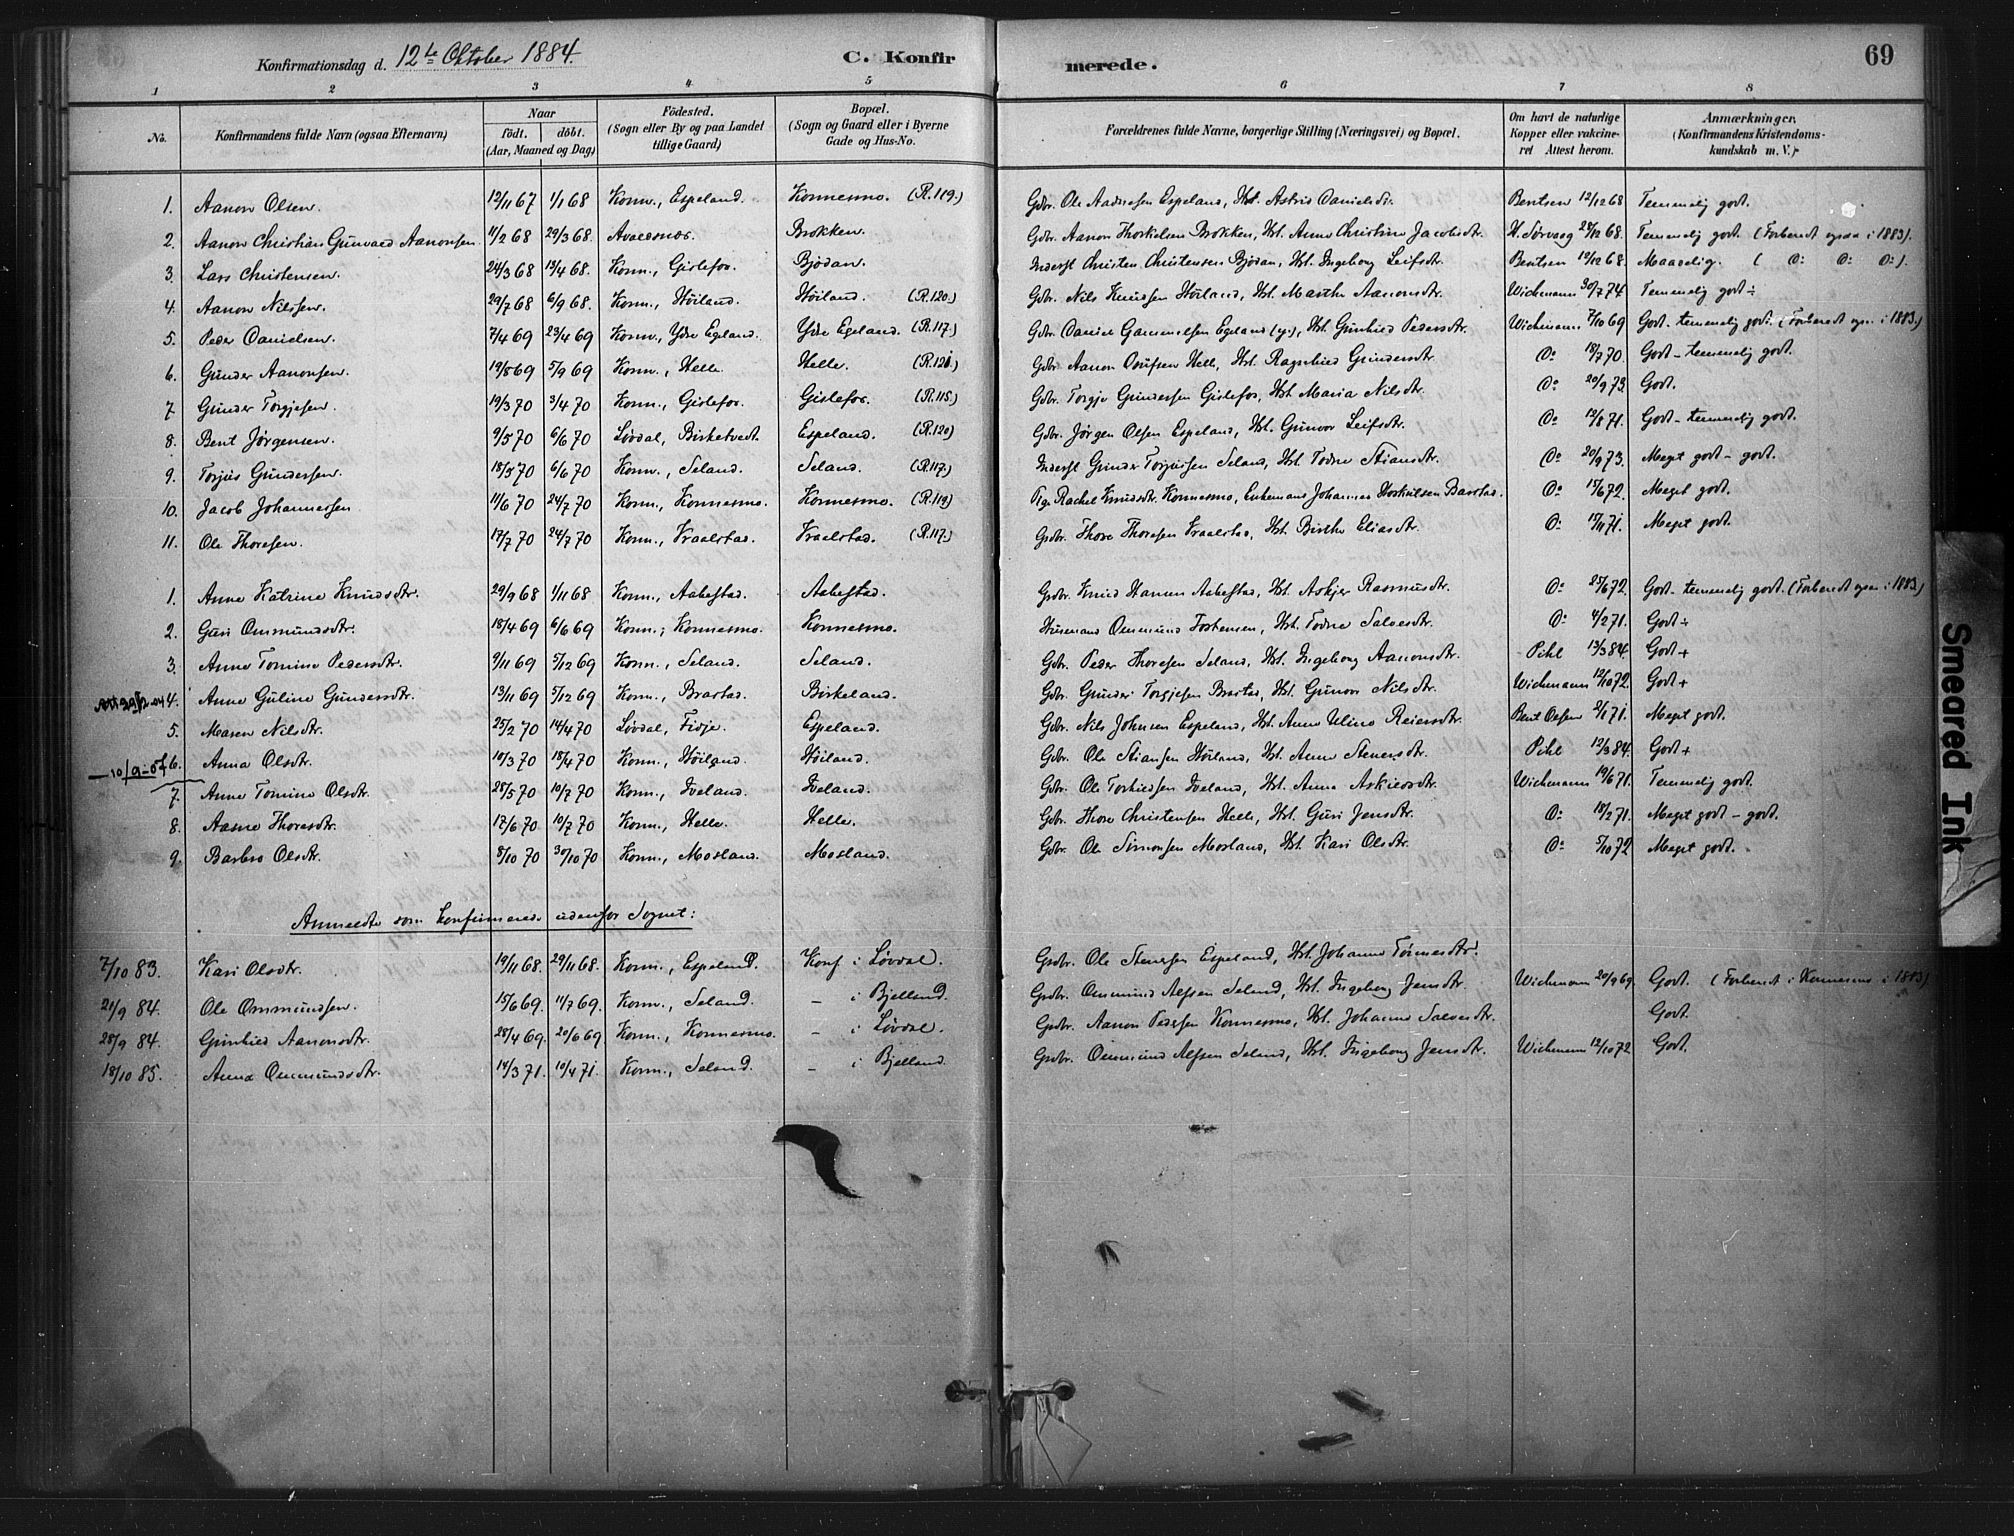 Konfirmationsdag d. 12te Oktober 1884. C. Konfirmerede. 69
1 2 3 4 5 6 7 8
No. Konfirmandens fulde Navn (ogsaa Efternavn) Naar födt. döbt. (Aar, Maaned og Dag) Födested. (Sogn eller By og paa Landet tillige Gaard) Bopæl. (Sogn og Gaard eller i Byerne Gade og Hus-No. Forældrenes fulde Navne, borgerlige Stilling (Næringsvei) og Bopæl. Om havt de naturlige Kopper eller vakcineret Attest herom. Anmærkninger. (Konfirmandens Kristendomskundskab m. V.)
1. Aanon Olsen. 12/11 67 1/1 68 Konm., Espeland. Konnesmo. (R.119.) Gdbr. Ole Aadnesen Espeland, Hst. Astrid Danielsdtr. Bentsen 12/12 68 Temmelig godt.
2. Aanon Christian Gunvald Aanonsen 11/2 68 29/3 68. Avaldsnes. Brokken. Gdbr. Aanon Thorkelsen Brokken, Hst. Anne Christine Jacobsdtr. H. Sørvaag 28/12 68. Temmelig godt. (Forberedt ogsaa i 1883).
3. Lars Christensen. 24/3 68 13/4 68. Konm., Gislefos. Bjödan. Inderst Christen Christensen Bjödan, Hst. Ingeborg Leifsdtr. Bentsen 12/12 68. Maadelig. ( Do Do Do ).
4. Aanon Nilssen. 29/7 68 6/9 68. Konm., Höiland. Höiland. (R.120.) Gdbr. Nils Knudsen Höiland, Hst. Marthe Aanonsdtr. Wichmann 30/7 74 Temmelig godt ÷
5. Peder Danielsen. 7/4 69 23/4 69 Konm., Ydre Egeland. Ydre Egeland. (R.117.) Gdbr. Daniel Gammelsen Egeland (y.), Hst. Gunhild Pedersdtr. Wichmann 7/10 69 Godt - temmelig godt. (Forberedt ogs. i 1883.)
6. Gunder Aanonsen. 19/8 69 5/9 69 Konm., Helle. Helle. (R.121.) Gdbr. Aanon Olufsen Helle, Hst. Ragnhild Gundersdtr. Do 18/7 70. Godt - temmelig godt.
7. Gunder Torgjesen. 19/3 70 3/4 70 Konm., Gislefos. Gislefos. (R.115.) Gdbr. Torgje Gundersen Gislefos, Hst. Maria Nilsdtr. Do 20/9 73 Godt.
8. Bent Jørgensen. 9/5 70 6/6 70 Løvdal, Birketvedt. Espeland. (R.120) Gdbr. Jørgen Olsen Espeland, Hst. Gunvor Leifsdtr. Do 12/8 71. Godt - temmelig godt.
9. Torjus Gundersen. 18/5 70 6/6 70 Konm., Seland. Seland. (R.117.) Inderst Gunder Torjussen Seland, Hst. Todne Stiansdtr. Do 20/9 73. Meget godt - godt.
10. Jacob Johannessen 11/6 70 24/7 70 Konm., Konnesmo. Konnesmo. (R.119) Pige Rachel Knudsdtr. Konnesmo, Enkemand Johannes Thorkilsen Brastad. Do 15/6 72. Meget godt.
11. Ole Thoresen. 17/7 70 24/7 70 Konm., Vraalstad. Vraalstad. (R.117.) Gdbr. Thore Thoresen Vraalstad, Hst. Birthe Eliasdtr. Do 15/11 71. Meget godt.
1. Anne Katrine Knudsdtr. 29/9 68 1/11 68 Konm., Aabestad. Aabestad. Gdbr. Knud Hansen Aabestad, Hst. Askjer Rasmusdtr. Do 25/6 72. Godt - temmelig godt. (Forberedt ogsaa i 1883)
2. Guri Ommundsdtr. 18/4 69 6/6 69 Konm., Konnesmo. Konnesmo. Husmand Ommund Tostensen, Hst. Todne Salvesdtr. Do 4/2 71. Godt ÷
3. Anne Tomine Pedersdtr. 9/11 69 5/12 69 Konm., Seland. Seland. Gdbr. Peder Thoresen Seland, Hst. Ingeborg Aanonsdtr. Pihl 13/3 84. Godt +
Att 29/2 04 4. Anne Guline Gundersdtr. 13/11 69 5/12 69 Konm., Brastad. Birkeland. Gdbr. Gunder Torgjesen Brastad, Hst. Gunvor Nilsdtr. Wichmann 12/10 72. Godt +
5. Maren Nilsdtr. 25/2 70 14/4 70 Løvdal, Fidje. Espeland. Gdbr. Nils Johnsen Espeland, Hst. Anne Uline Reiersdtr. Bent Olsen 2/1 71. Meget godt.
— 10/9-07 6. Anna Olsdtr. 10/3 70 18/4 70 Konm., Höiland. Höiland. Gdbr. Ole Stiansen Höiland, Hst. Anne Stenersdtr. Pihl 12/3 84. Godt +
7. Anne Tomine Olsdtr. 28/5 70 10/7 70 Konm., Iveland. Iveland. Gdbr. Ole Torkildsen Iveland, Hst. Anna Askildsdtr. Wichmann 19/6 71. Temmelig godt.
8. Aasne Thoresdtr. 17/6 70 10/7 70 Konm., Helle. Helle. Gdbr. Thore Christensen Helle, Hst. Guri Jensdtr. Do 18/2 71. Meget godt - godt.
9. Barbro Olsdtr. 8/10 70 30/10 70 Konm., Mosland. Mosland. Gdbr. Ole Simonsen Mosland, Hst. Kari Olsdtr. Do 5/10 72 Meget godt.
Anmeldte som konfirmerede udenfor Sognet:
7/10 83. Kari Olsdtr. 19/11 68. 29/11 68. Konm., Espeland. Konf. i Løvdal. Gdbr. Ole Stenersen Espeland, Hst. Johanne Tønnesdtr.
21/9 84. Ole Ommundsen. 15/6 69. 11/7 69. Konm., Seland. — i Bjelland. Gdbr. Ommund Alfsen Seland, Hst. Ingeborg Jensdtr. Wichmann 20/9 69. Godt. (Forberedt i Konnesmo i 1883)
28/9 84. Gunhild Aanonsdtr. 28/4 69. 20/6 69. Konm., Konnesmo. — i Løvdal. Gdbr. Aanon Pedersen Konnesmo, Hst. Johanne Salvesdtr. Godt.
18/10 85. Anna Ommundsdtr. 14/3 71. 10/4 71. Konm., Seland. — i Bjelland. Gdbr. Ommund Alfsen Seland, Hst. Ingeborg Jensdtr. Wichmann 12/10 72 Godt.
Smeared Ink